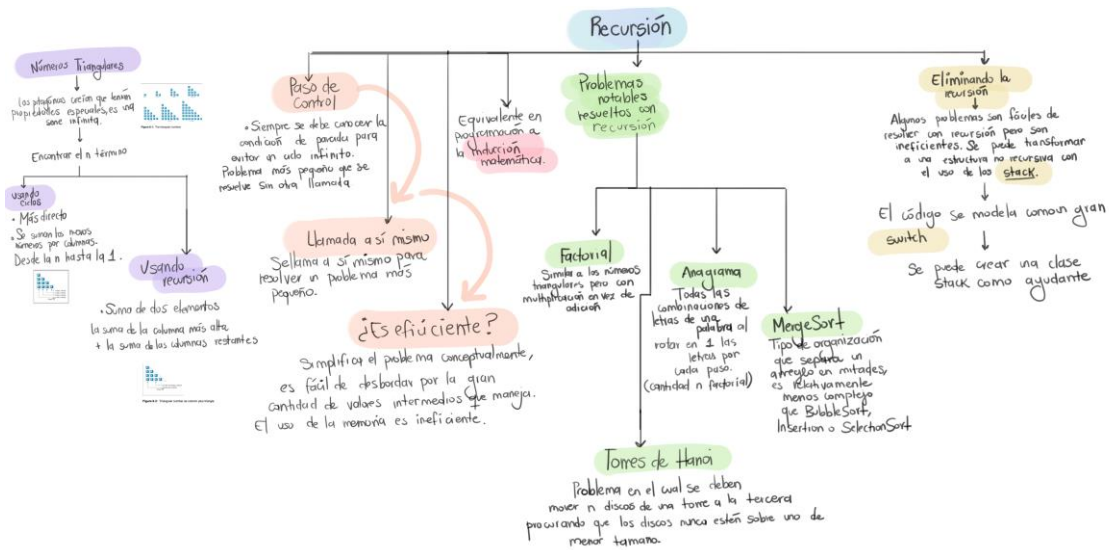 Recursión
Números Triangulares
Los pitagóricos creían que tenían
propiedades especiales, es una
serie infinita.
Encontrar el n término
usando
ciclos
• Más directo
• Se suman los
números por columnas.
Desde la n hasta la 1.
Usando
recursión
• Suma de dos elementos
la suma de la columna más alta
+ la suma de las columnas restantes
Paso de
Control
• Siempre se debe conocer la
condición de parada para
evitar un ciclo infinito.
Problema más pequeño que se
resuelve sin otra llamada
Llamada a sí mismo
Se llama a sí mismo para
resolver un problema más
pequeño.
¿Es efiúciente?
Simplifica el problema conceptualmente,
es fácil de desbordar por la gran
cantidad de valores intermedios que maneja.
El uso de la memoria es ineficiente.
Equivalente en
programación a
la inducción
matemática.
Problemas
notables
resueltos con
recursión
Factorial
Similar a los números
triangulares pero con
multiplicación en vez de
adición
Anagrama
Todas las
combinaciones de
letras de una
palabra al
rotar en 1 las
letras por
cada paso.
(cantidad n factorial)
MergeSort
Tipo de organización
que separa un
arreglo en mitades,
es relativamente
menos complejo
que BubbleSort,
Insertion o SelectionSort
Torres de Hanoi
Problema en el cual se deben
mover n discos de una torre a la tercera
procurando que los discos nunca estén sobre uno de
menor tamaño.
Eliminando la
recursión
Algunos problemas son fáciles de
resolver con recursión pero son
ineficientes. Se puede transformar
a una estructura no recursiva con
el uso de los stack.
El código se modela como un gran
switch
Se puede crear una clase
stack como ayudante